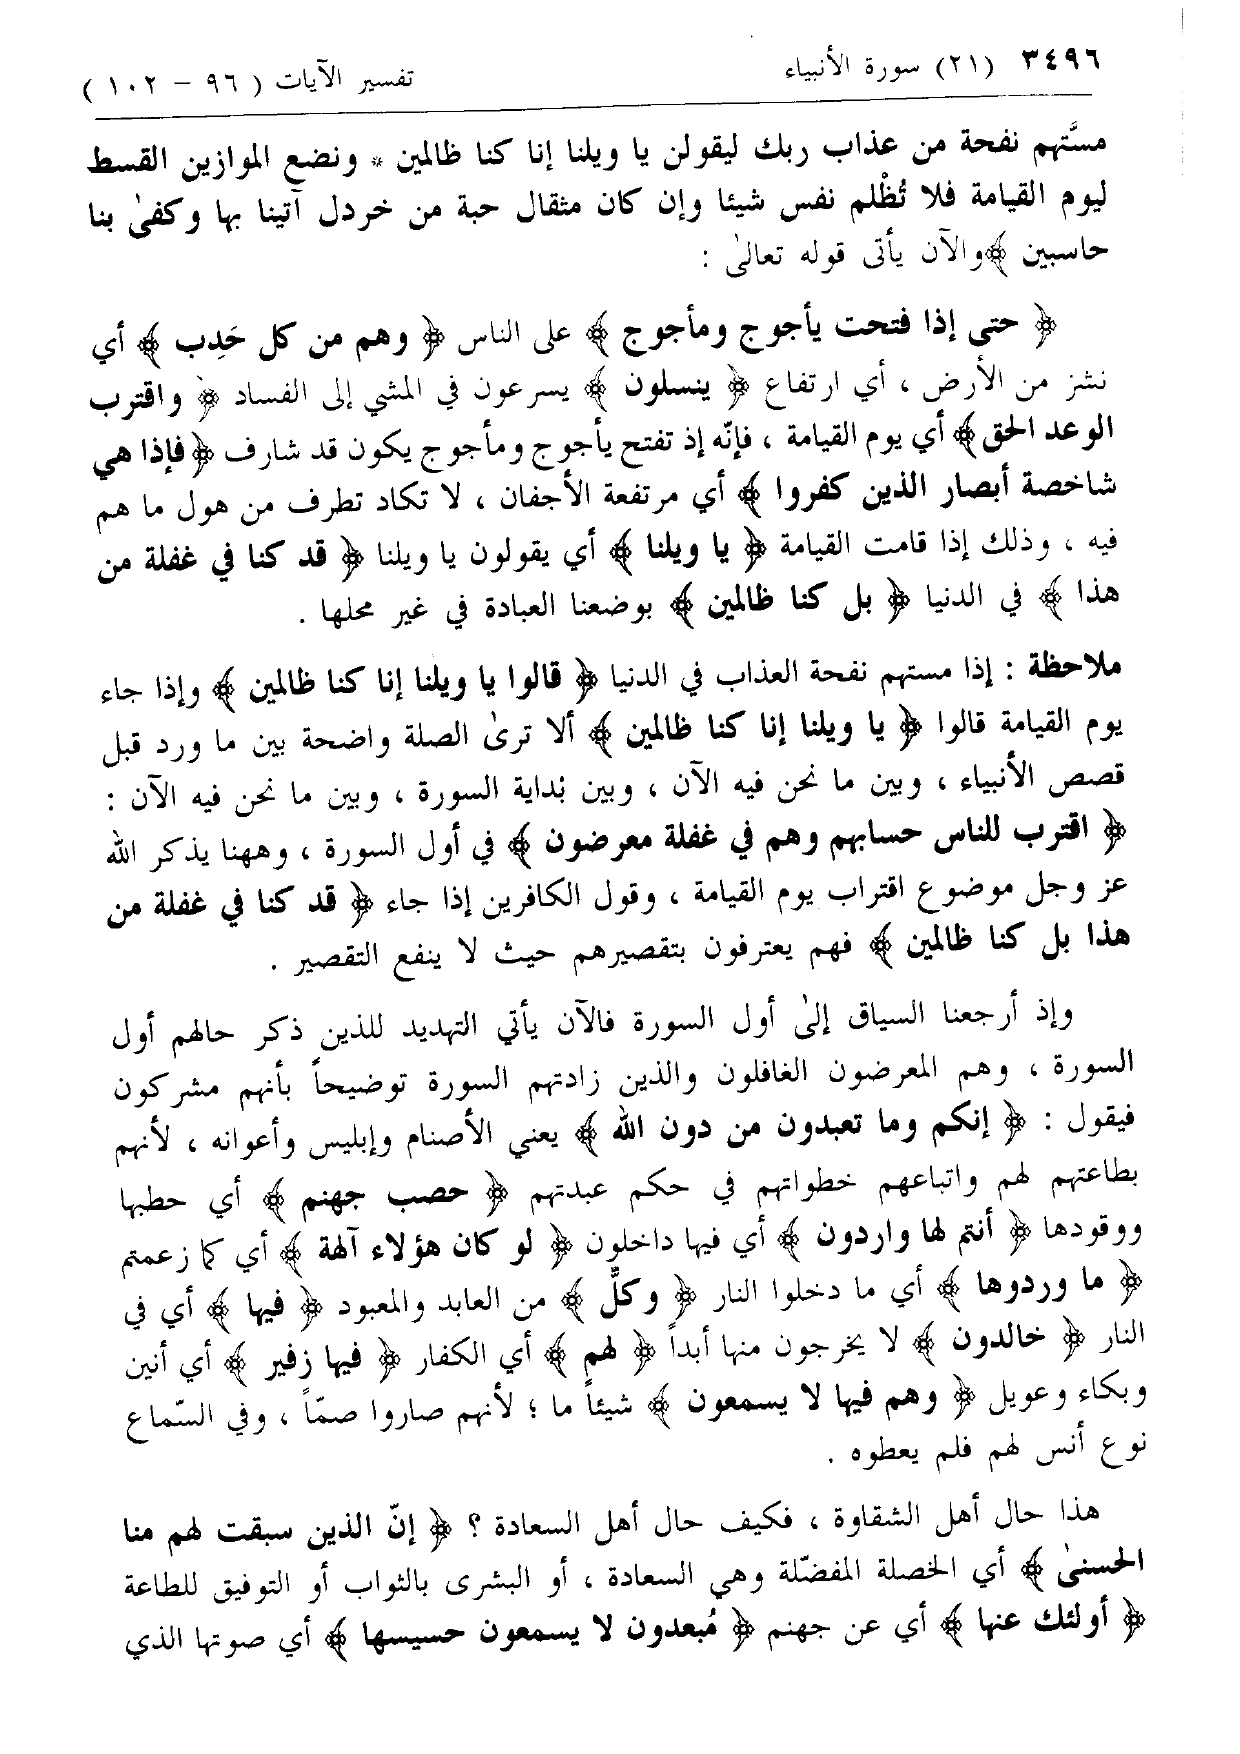 ٣٤٩٦ (٢١) سورة الأنبياء تفسير الآيات ( ٩٦ – ١٠٢ )
مسَّتهم نفحة من عذاب ربك ليقولن يا ويلنا إنا كنا ظالمين * ونضع الموازين القسط
ليوم القيامة فلا تُظْلم نفس شيئا وإن كان مثقال حبة من خردل آتينا بها وكفىٰ بنا
حاسبين ﴾والآن يأتى قوله تعالىٰ :
﴿ حتى إذا فتحت يأجوج ومأجوج ﴾ على الناس ﴿ وهم من كل حَدِب ﴾ أي
نشز من الأرض ، أي ارتفاع ﴿ ينسلون ﴾ يسرعون في المشي إلى الفساد ﴿ واقترب
الوعد الحق﴾ أي يوم القيامة ، فإنّه إذ تفتح يأجوج ومأجوج يكون قد شارف ﴿فإذا هي
شاخصة أبصار الذين كفروا ﴾ أي مرتفعة الأجفان ، لا تكاد تطرف من هول ما هم
فيه ، وذلك إذا قامت القيامة ﴿ يا ويلنا ﴾ أي يقولون يا ويلنا ﴿ قد كنا في غفلة من
هذا ﴾ في الدنيا ﴿ بل كنا ظالمين ﴾ بوضعنا العبادة في غير محلها .
ملاحظة : إذا مستهم نفحة العذاب في الدنيا ﴿ قالوا يا ويلنا إنا كنا ظالمين ﴾ وإذا جاء
يوم القيامة قالوا ﴿ يا ويلنا إنا كنا ظالمين ﴾ ألا ترىٰ الصلة واضحة بين ما ورد قبل
قصص الأنبياء ، وبين ما نحن فيه الآن ، وبين بُداية السورة ، وبين ما نحن فيه الآن :
﴿ اقترب للناس حسابهم وهم في غفلة معرضون ﴾ في أول السورة ، وههنا يذكر الله
عز وجل موضوع اقتراب يوم القيامة ، وقول الكافرين إذا جاء ﴿ قد كنا في غفلة من
هذا بل كنا ظالمين ﴾ فهم يعترفون بتقصيرهم حيث لا ينفع التقصير .
وإذ أرجعنا السياق إلىٰ أول السورة فالآن يأتي التهديد للذين ذكر حالهم أول
السورة ، وهم المعرضون الغافلون والذين زادتهم السورة توضيحاً بأنهم مشركون
فيقول : ﴿ إنكم وما تعبدون من دون الله ﴾ يعني الأصنام وإبليس وأعوانه ، لأنهم
بطاعتهم لهم واتباعهم خطواتهم في حكم عبدتهم ﴿ حصب جهنم ﴾ أي حطبها
ووقودها ﴿ أنتم لها واردون ﴾ أي فيها داخلون ﴿ لو كان هؤلاء آلهة ﴾ أي كما زعمتم
﴿ ما وردوها ﴾ أي ما دخلوا النار ﴿ وكلٌّ ﴾ من العابد والمعبود ﴿ فيها ﴾ أي في
النار ﴿ خالدون ﴾ لا يخرجون منها أبداً ﴿ لهم ﴾ أي الكفار ﴿ فيها زفير ﴾ أي أنين
وبكاء وعويل ﴿ وهم فيها لا يسمعون ﴾ شيئاً ما ؛ لأنهم صاروا صمّاً ، وفي السّماع
نوع أنس لهم فلم يعطوه .
هذا حال أهل الشقاوة ، فكيف حال أهل السعادة ؟ ﴿ إنّ الذين سبقت لهم منا
الحسنىٰ ﴾ أي الخصلة المفضّلة وهي السعادة ، أو البشرى بالثواب أو التوفيق للطاعة
﴿ أولئك عنها ﴾ أي عن جهنم ﴿ مُبعدون لا يسمعون حسيسها ﴾ أي صوتها الذي